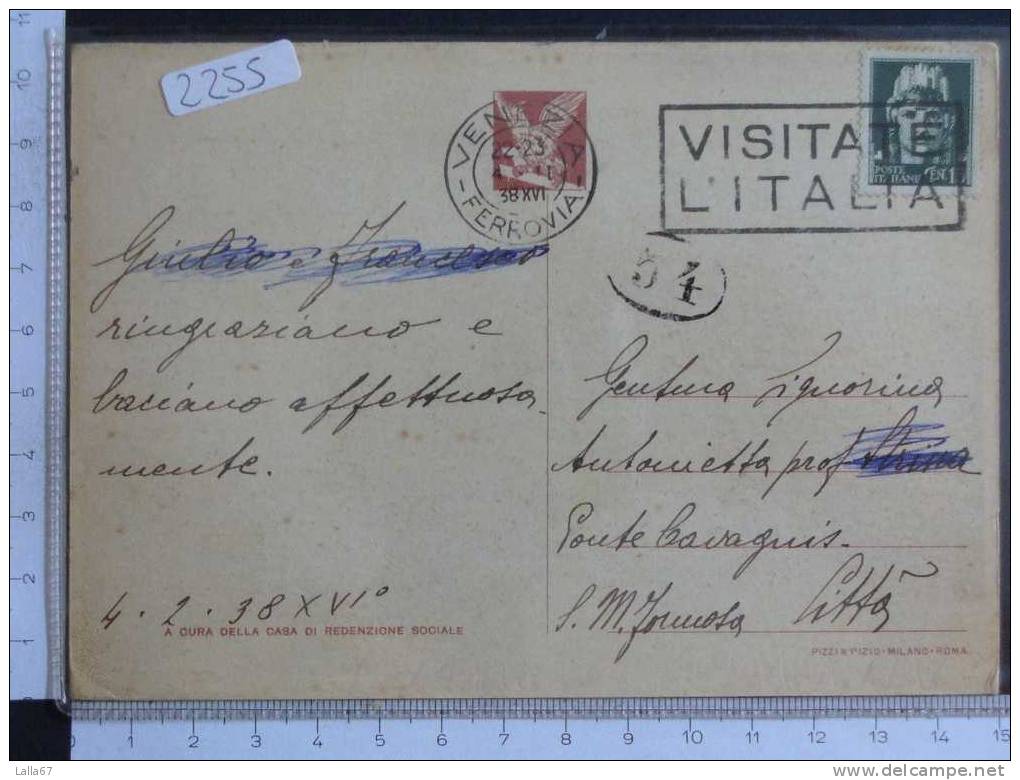 2255
VENEZIA
22-23
38 XVI
- FERROVIA -
VISITATE
L'ITALIA
POSTE
ITALIANE
CEN. 15
54
Giulio e Francesco
ringraziano e
baciano affettuosa-
mente.
4 . 2 . 38 XVI°
A CURA DELLA CASA DI REDENZIONE SOCIALE
Gentma Signorina
Antonietta prof
Ponte Cavagnis.
S. M. Formosa Città
PIZZI & PIZIO - MILANO - ROMA
11
10
9
8
7
6
5
4
3
2
1
1 2 3 4 5 6 7 8 9 10 11 12 13 14 15
Lalla67
www.delcampe.net